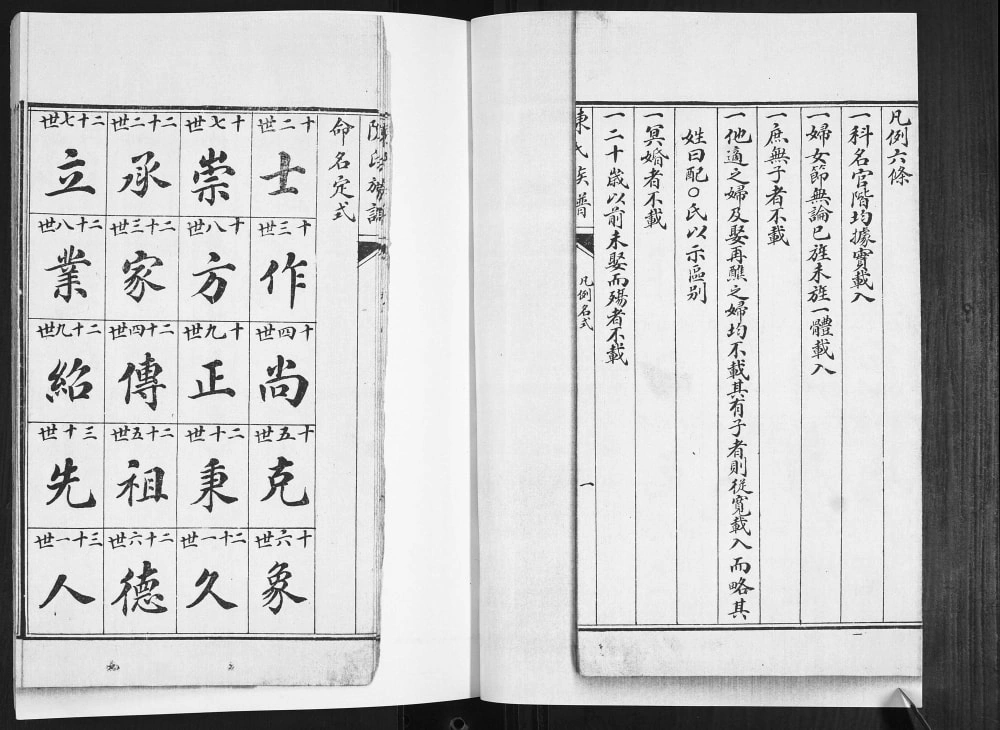 凡例六條
一科名官階均據實載入
一婦女節無論已旌未旌一體載入
一庶無子者不載
一他適之婦及娶再醮之婦均不載其有子者則從寬載入而略其
姓曰配○氏以示區别
一冥婚者不載
一二十歲以前未娶而殤者不載
陳氏族譜
凡例名式
一
陳氏族譜
命名定式
十二世
士
十三世
作
十四世
尚
十五世
克
十六世
象
十七世
崇
十八世
方
十九世
正
二十世
秉
二十一世
久
二十二世
承
二十三世
家
二十四世
傳
二十五世
祖
二十六世
德
二十七世
立
二十八世
業
二十九世
紹
三十世
先
三十一世
人